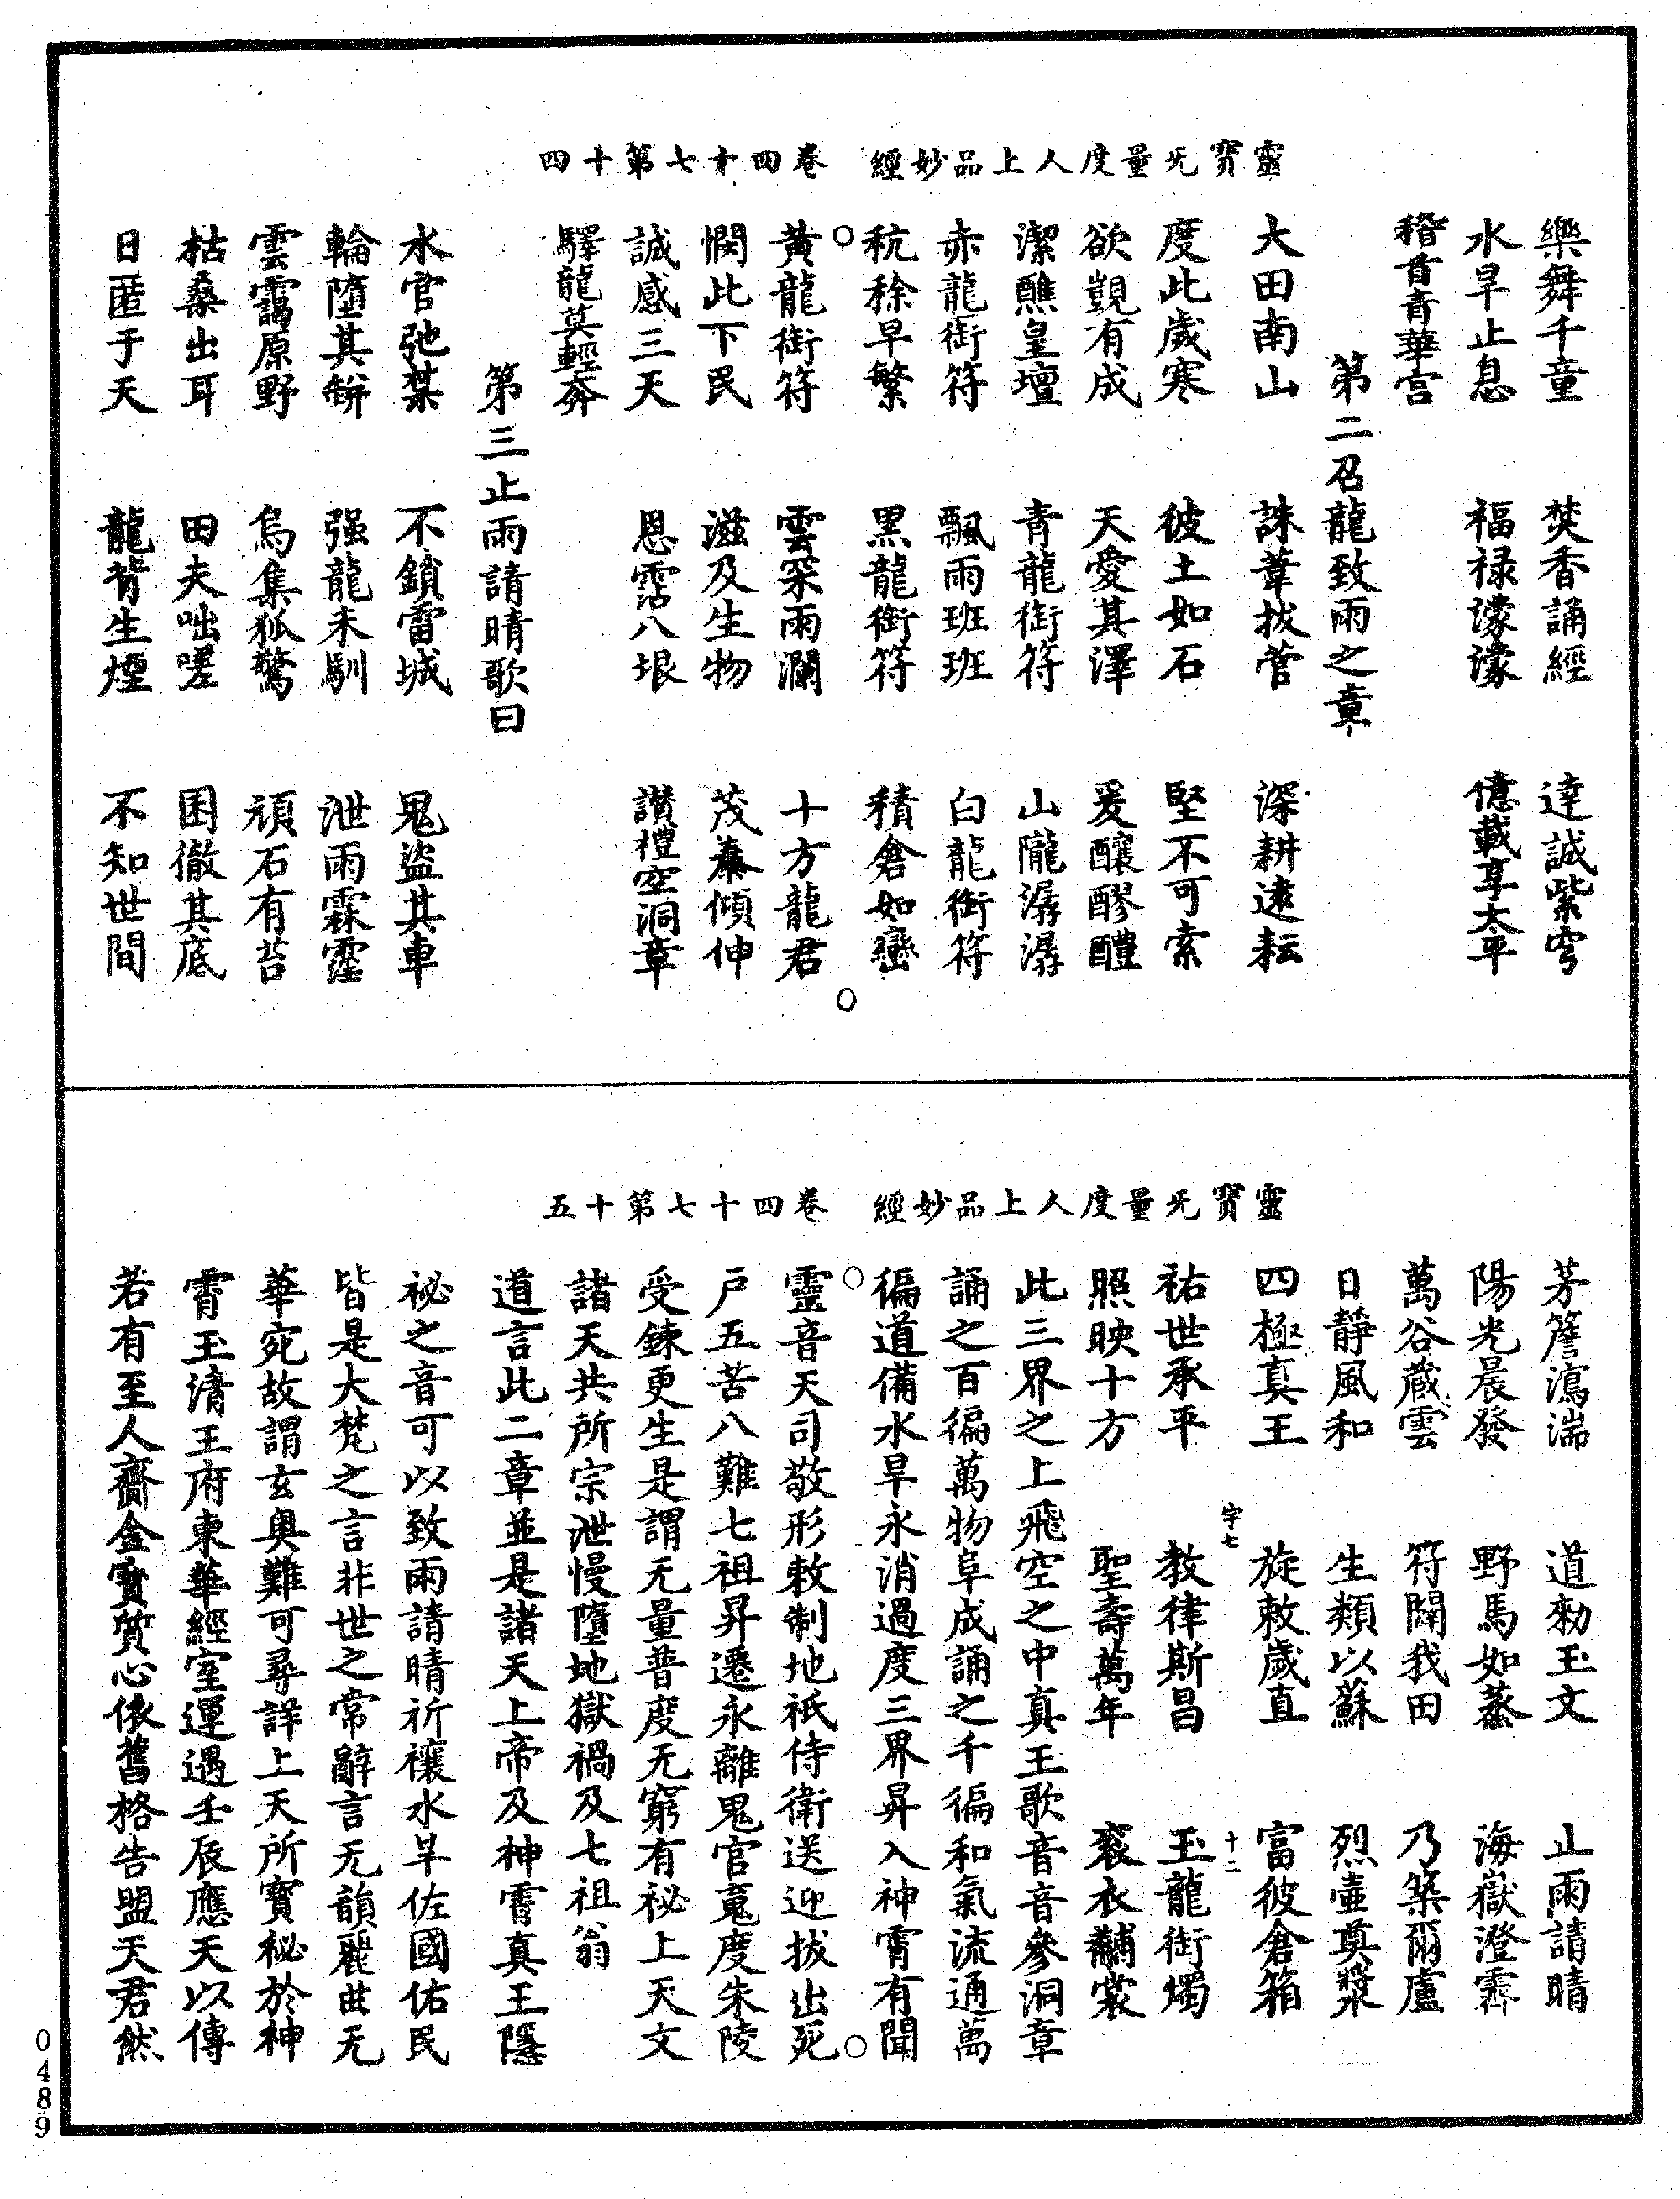 靈寶无量度人上品妙經　卷四十七第十四
樂舞千童　焚香誦經　達誠紫穹
水旱止息　福祿濛濛　億載享太平
稽首青華宫
第二召龍致雨之章
大田南山　誅葦拔菅　深耕遠耘
度此歲寒　彼土如石　堅不可索
欲覬有成　天愛其澤　爰釀醪醴
潔醮皇壇　青龍銜符　山隴潺潺
赤龍銜符　飄雨班班　白龍銜符
秔稌早繁　黑龍銜符　積倉如巒
黃龍銜符　雲罙雨瀾　十方龍君
憫此下民　滋及生物　茂養傾伸
誠感三天　恩霑八垠　讚禮空洞章
驛龍莫輕奔
第三止雨請晴歌曰
水官弛禁　不鎖雷城　鬼盜其車
輪墮其缾　强龍未馴　泄雨霖霪
雲靄原野　烏集狐驚　頑石有苔
枯桑出耳　田夫咄嗟　困徹其底
日匿于天　龍背生煙　不知世間
靈寶无量度人上品妙經　卷四十七第十五
茅簷瀉湍　道勑玉文　止雨請晴
陽光晨發　野馬如蒸　海嶽澄霽
萬谷藏雲　符開我田　乃築爾廬
日靜風和　生類以蘇　烈壷奠漿
四極真王　旋敕歲直　富彼倉箱
字七　十二
祐世承平　教律斯昌　玉龍銜燭
照映十方　聖壽萬年　衮衣黼裳
此三界之上飛空之中真王歌音音參洞章
誦之百徧萬物阜成誦之千徧和氣流通萬
徧道備水旱永消過度三界昇入神霄有聞
靈音天司敬形敕制地祇侍衛送迎拔出死
戶五苦八難七祖昇遷永離鬼官䰟度朱陵
受鍊更生是謂无量普度无窮有祕上天文
諸天共所宗泄慢墮地獄禍及七祖翁
道言此二章並是諸天上帝及神霄真王隱
祕之音可以致雨請晴祈禳水旱佐國佑民
皆是大梵之言非世之常辭言无韻麗曲无
華宛故謂玄奥難可尋詳上天所寳祕於神
霄玉清王府東華經室運遇壬辰應天以傳
若有至人齎金寳質心依舊格告盟天君然
0489